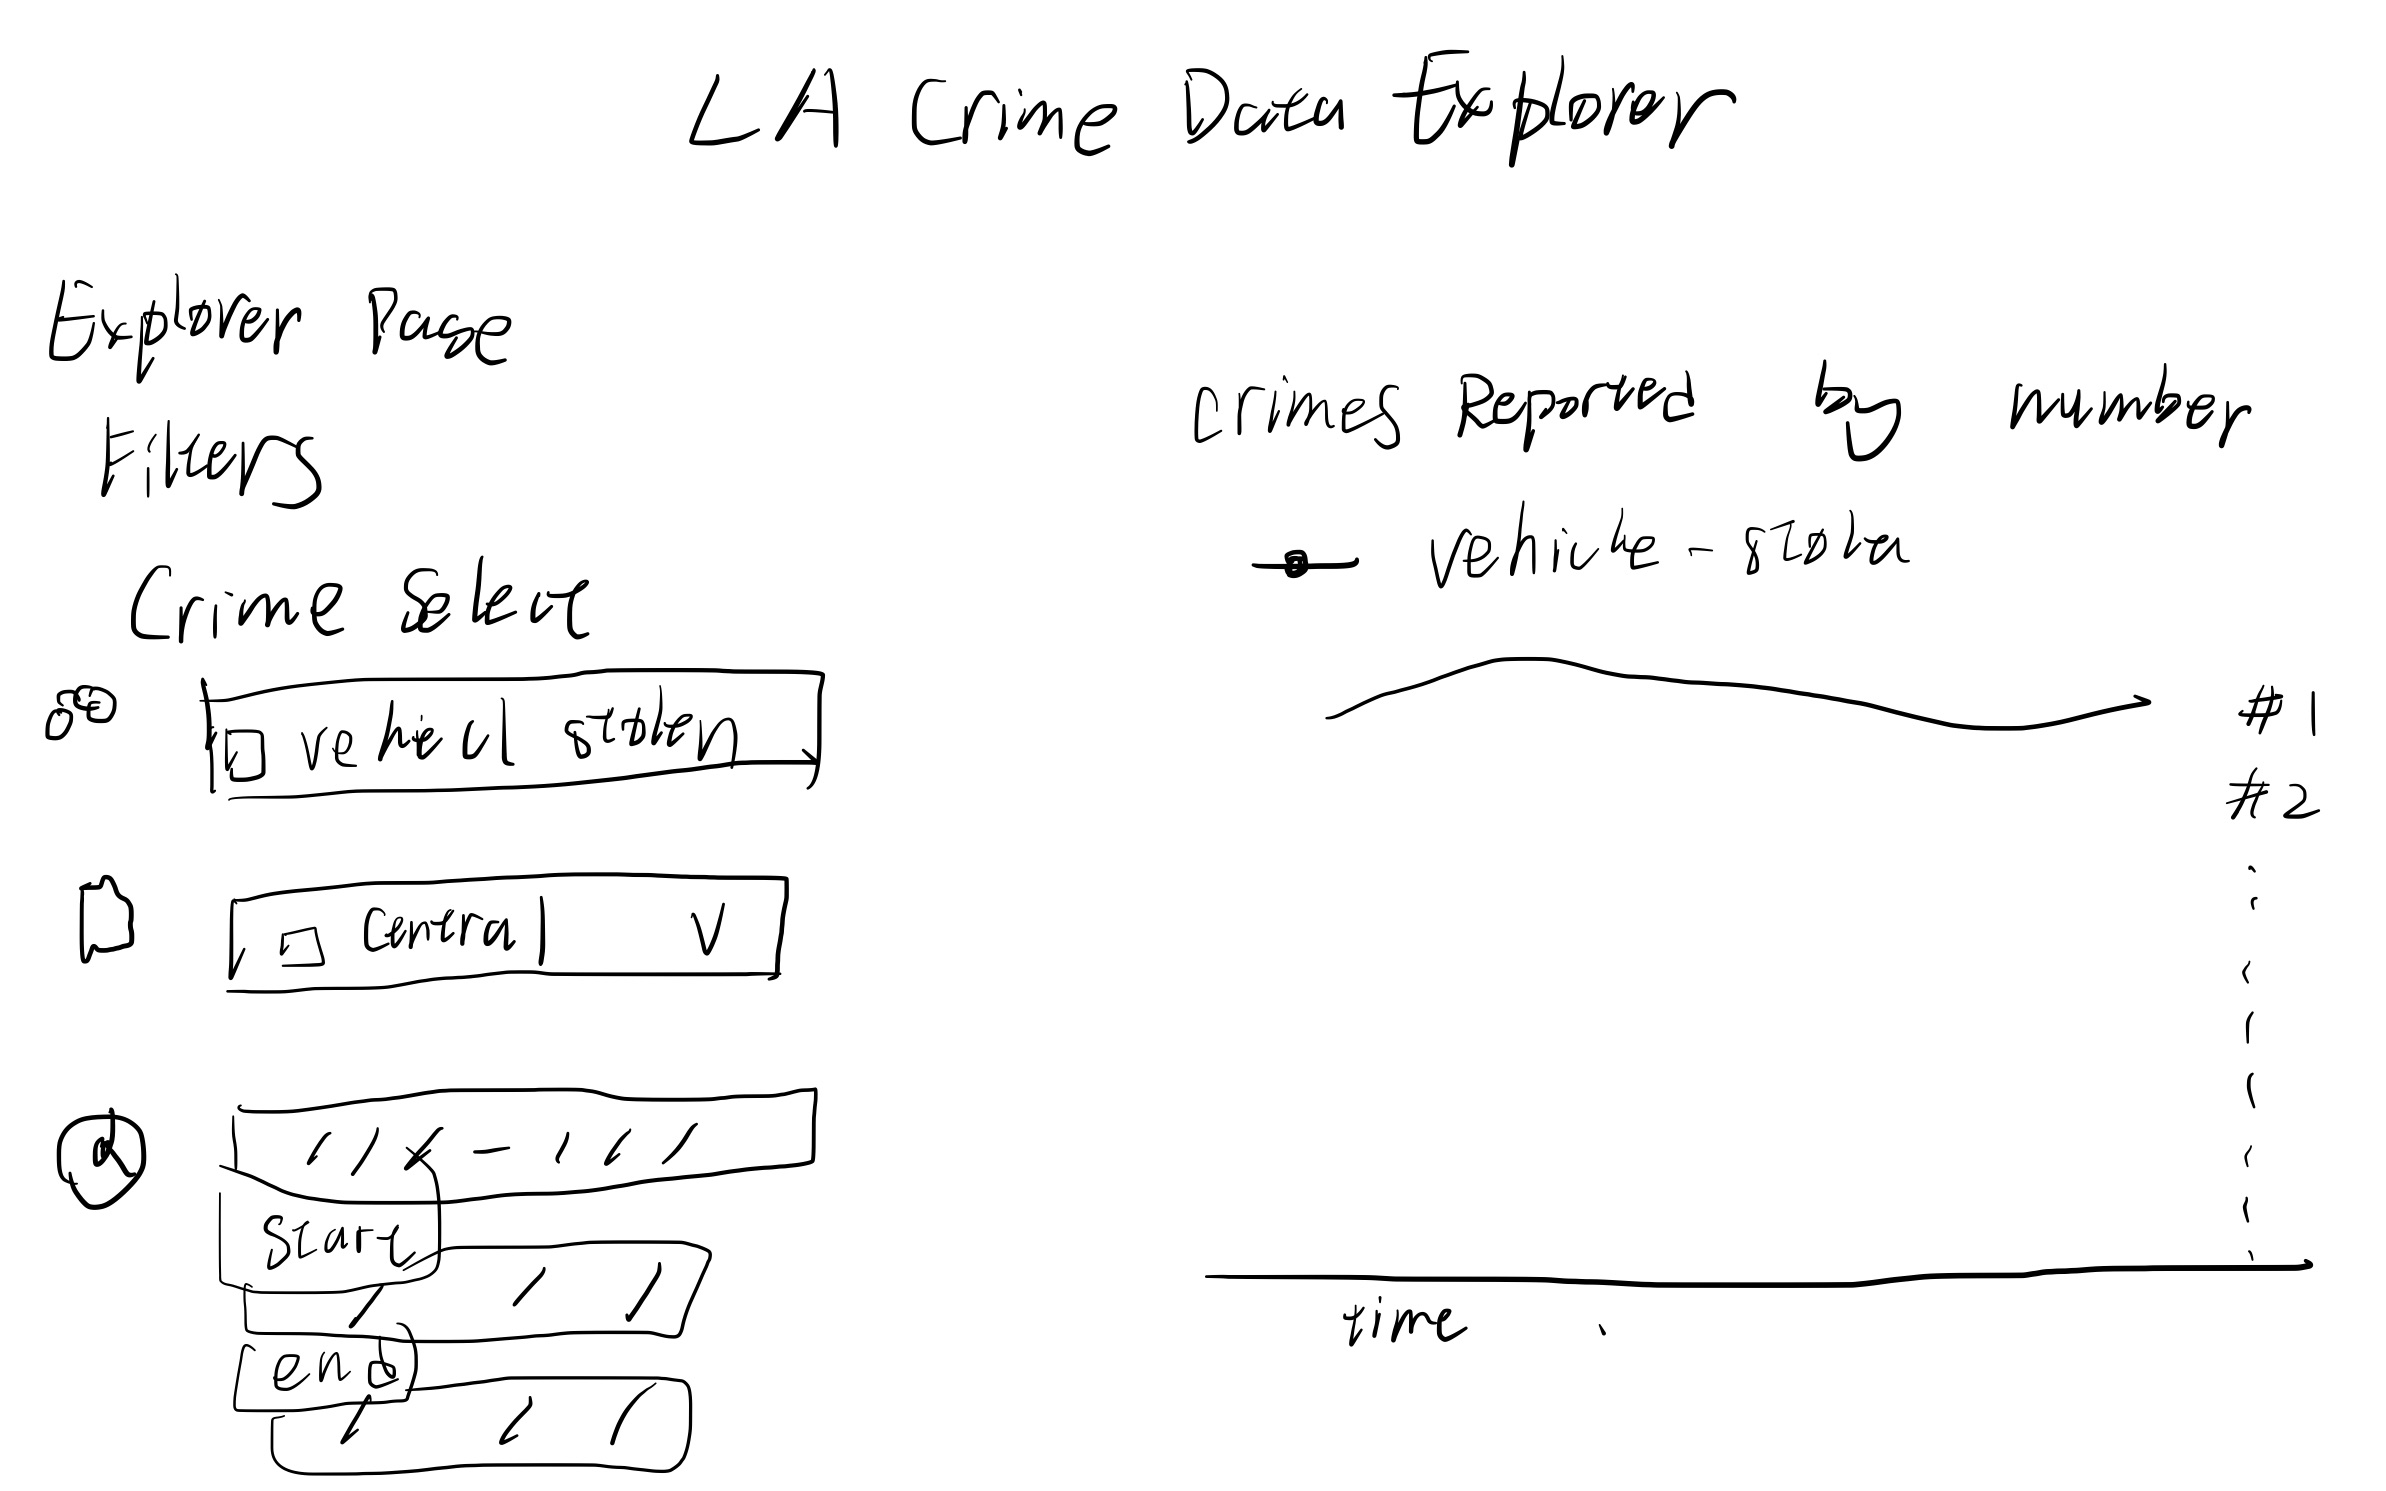 LA Crime Data Explorer
Explorer Page
Filters
Crime Select
vehicl stolen
General V
/ / x - / / /
Start
/ / /
end
/ / /
crimes Reported by number
vehicle - stolen
#1
#2
time